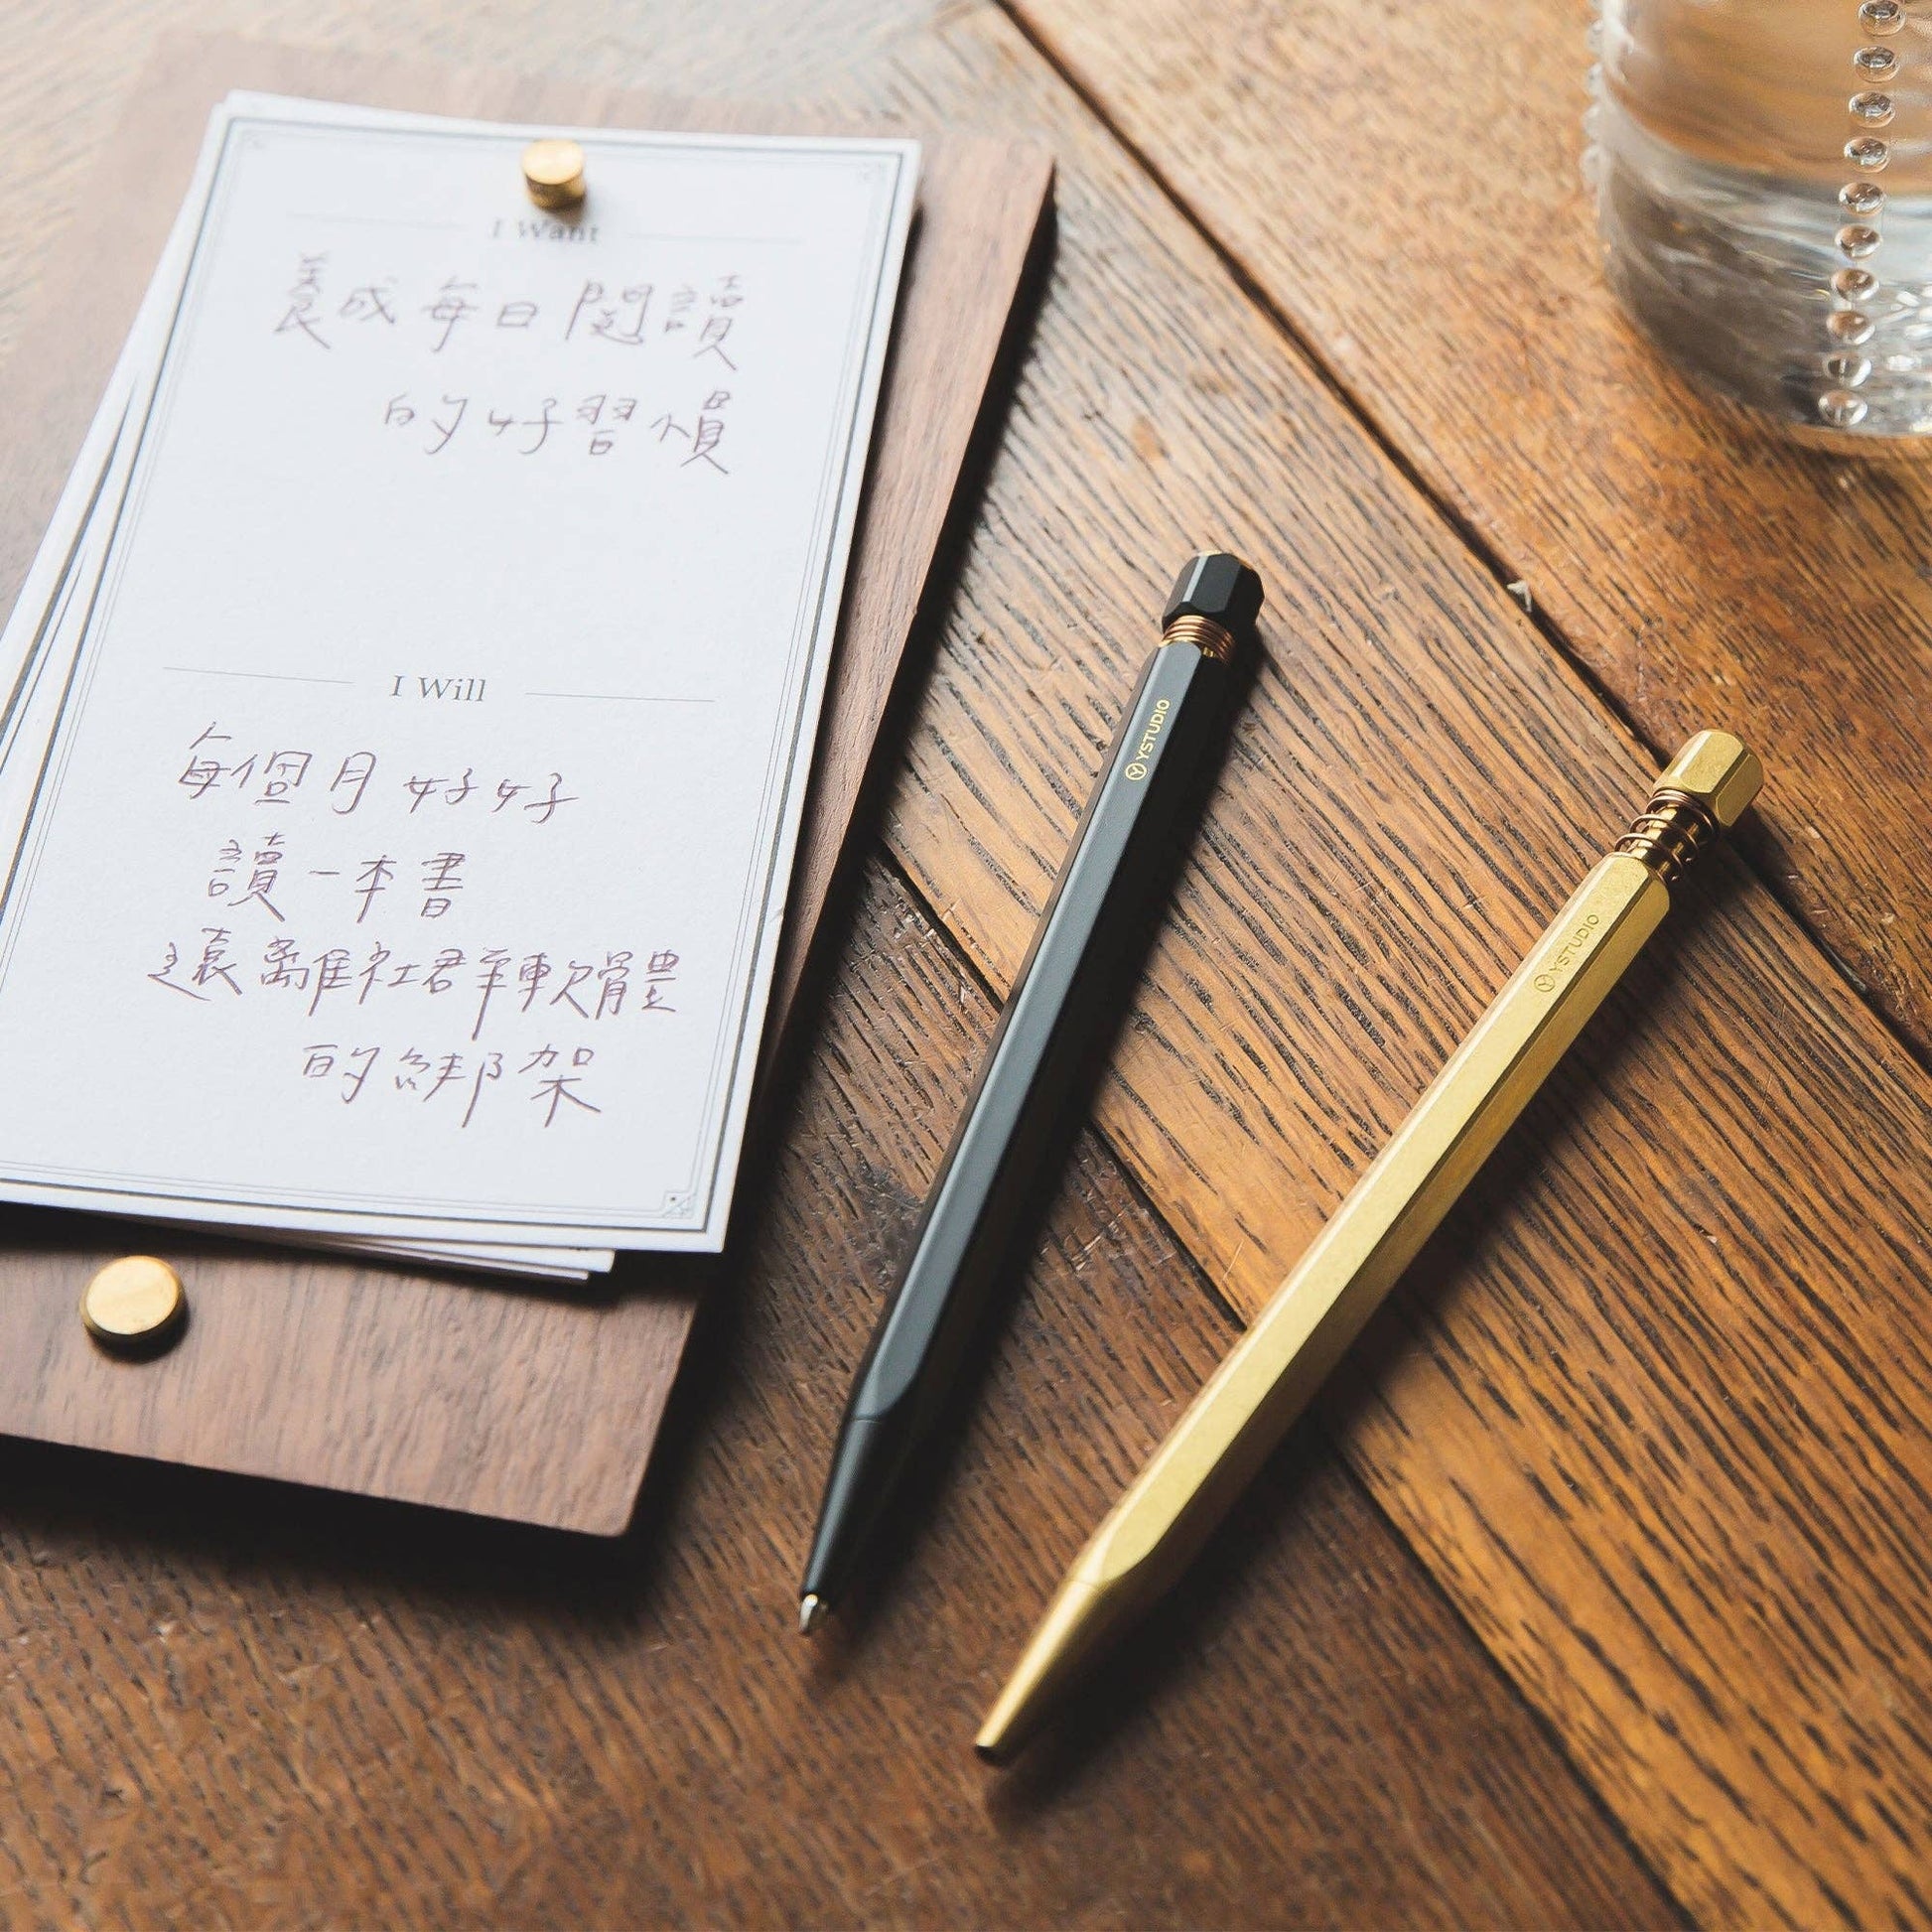 I Want
養成每日閱讀
的好習慣
I Will
每個月好好
讀一本書
遠離社群軟體
的綁架
YSTUDIO
YSTUDIO